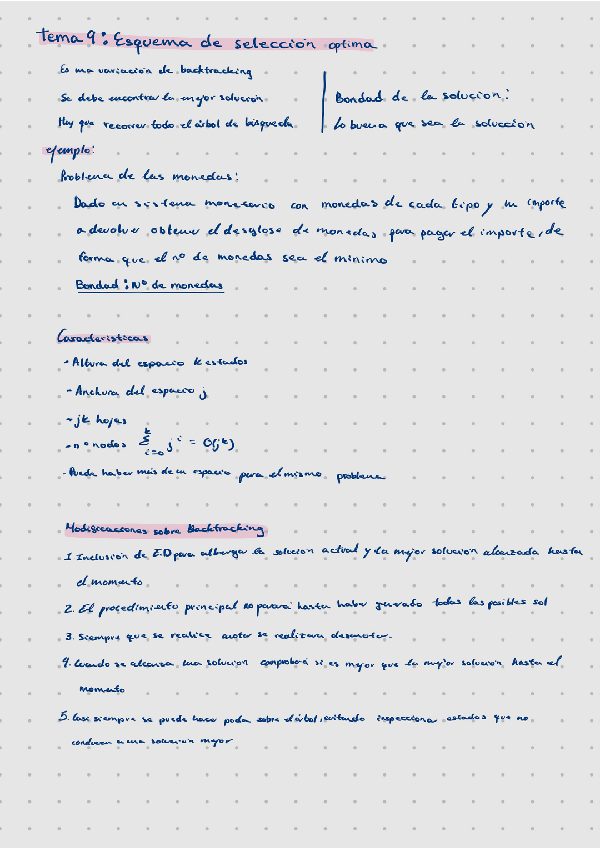 tema 9: Esquema de selección optima
Es una variación de backtracking
Se debe encontrar la mejor solución
Hay que recorrer todo el árbol de búsqueda
Bondad de la solucion:
Lo buena que sea la solucción
ejemplo:
Problema de las monedas:
Dado un sistema monetario con monedas de cada tipo y un importe
a devolver obtener el desglose de monedas para pagar el importe, de
forma que el nº de monedas sea el minimo
Bondad: Nº de monedas
Caracteristicas
- Altura del espacio k estados
- Anchura del espacio j
- jk hojas
- nº nodos Σ i=0 k j^i = O(jk)
- Puede haber más de un espacio para el mismo problema
Modificaciones sobre Backtracking
1 Inclusión de E.D para alberga la solucion actual y la mejor solucion alcanzada hasta
el momento
2. El procedimiento principal no parará hasta haber generado todas las posibles sol
3. Siempre que se realice anotar se realizara desanotar.
4. Cuando se alcanza una solucion comprobará si es mejor que la mejor solucion hasta el
momento
5. Casi siempre se puede hacer poda sobre el árbol, evitando inspecciona estados que no
conducen a una solucion mejor